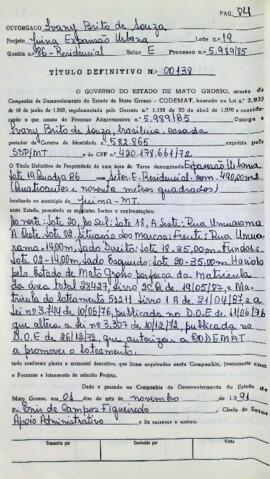 PAG. 84
OUTORGADO Ivany Brito de Souza
Projeto Juina Expansão Urbana Lote n.º 19
Quadra n.º 86-Residencial Setor E Processo n.º 5.989/85
TÍTULO DEFINITIVO N.º 00138
O GOVERNO DO ESTADO DE MATO GROSSO, através da
Companhia de Desenvolvimento do Estado de Mato Grosso - CODEMAT, baseado na Lei n.º
10 de junho de 1969, regulamentada pelo Decreto n.º 1.138 de 30 de abril de 1970 e
o que consta do Processo Administrativo n.º 5.989/85 Outorga a
Ivany Brito de Souza, brasileira, casada
portador da Carteira de Identidade n.º 582.865 expedida pela
SSP/MT e do CPF n.º 420.178.661/72
O Título Definitivo de Propriedade de uma área de Terra denominada Expansão Urbana
Lote 19 Quadra 86 Setor: E-Residencial com 490,00m2
(Quatrocentos e noventa metros quadrados)
localizada no município de Juina-MT.
neste Estado, possuindo os seguintes limites e confrontações:
Ao norte: Lote 20, Ao Sul: Lote 18, A Leste: Rua Umuarama
A Oeste: Lote 02, Situação dos Marcos: Frente: Rua Umua-
rama-14,00m, Lado Direito: Lote 18-35,00m, Fundos:
Lote 02-14,00m, Lado Esquerdo: Lote 20-35,00m. Havido
pelo Estado de Mato Grosso por força da Matricula
da área total 22427, Livro 2CQ de 19/05/87, e Ma-
tricula do Loteamento 51211 Livro 1A de 21/04/87 e a
Lei nº 3.744 de 10/06/76, publicada no D.O.E de 11/06/76
que altera a Lei nº 3.307 de 10/12/72, publicada no
D.O.E de 26/12/72, que autorizou a CODEMAT
a promover o loteamento.
tudo conforme planta e memorial descritivo, que ficam arquivados nesta Companhia, juntamente com
o Processo e loteamento do aludido Projeto.
Dado e passado na Companhia de Desenvolvimento do Estado de
Mato Grosso, em 01 do mês de novembro de 1991
Eu Enis de Campos Figueiredo Chefe do Setor
Apoio Administrativo o fiz escrever e assino.
Transcrito por Conferido por Visto